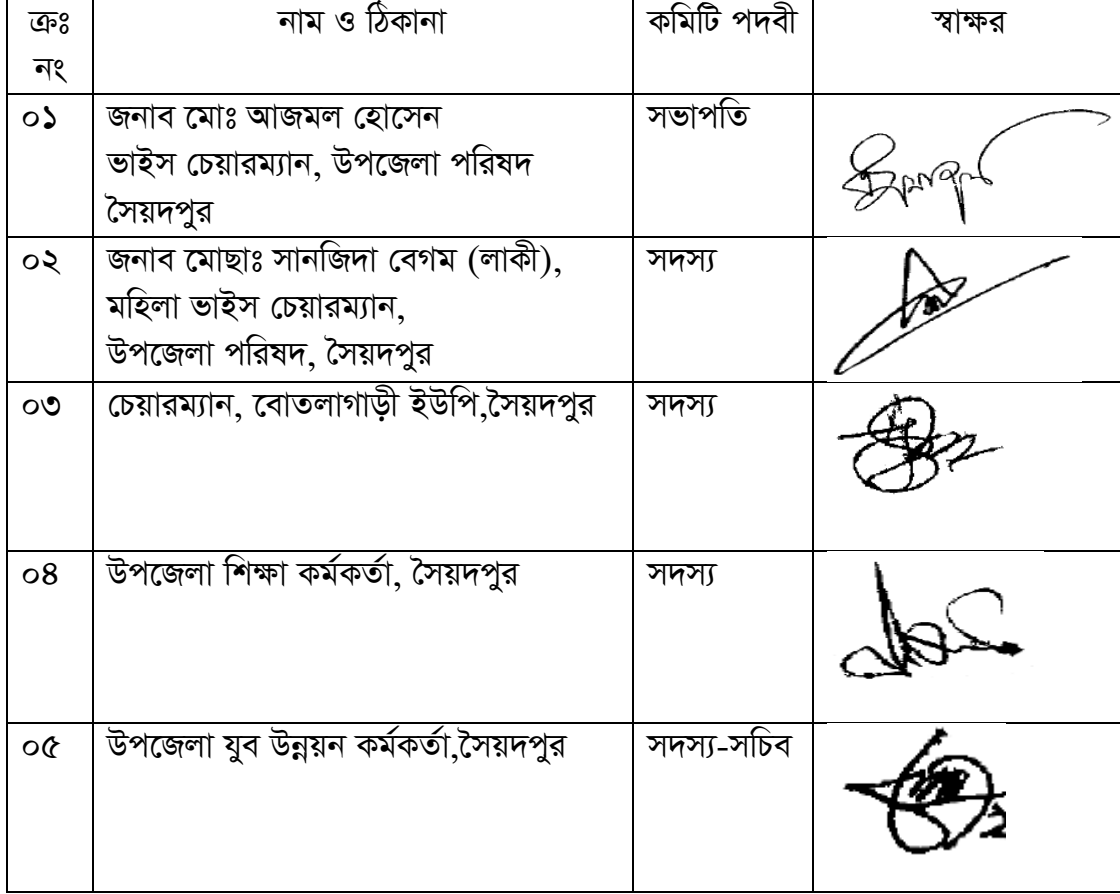 ক্রঃ নং নাম ও ঠিকানা কমিটি পদবী স্বাক্ষর
০১ জনাব মোঃ আজমল হোসেন সভাপতি
ভাইস চেয়ারম্যান, উপজেলা পরিষদ
সৈয়দপুর
০২ জনাব মোছাঃ সানজিদা বেগম (লাকী), সদস্য
মহিলা ভাইস চেয়ারম্যান,
উপজেলা পরিষদ, সৈয়দপুর
০৩ চেয়ারম্যান, বোতলাগাড়ী ইউপি,সৈয়দপুর সদস্য
০৪ উপজেলা শিক্ষা কর্মকর্তা, সৈয়দপুর সদস্য
০৫ উপজেলা যুব উন্নয়ন কর্মকর্তা,সৈয়দপুর সদস্য-সচিব